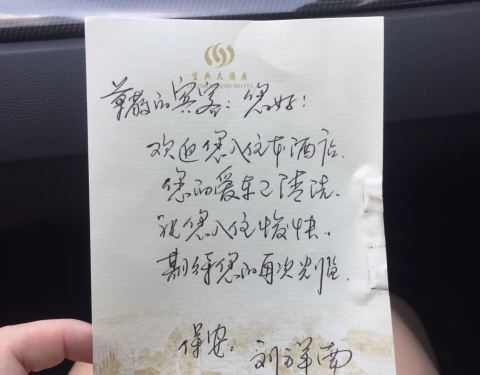 宜兴大酒店
尊敬的宾客：您好！
欢迎您入住本酒店.
您的爱车已清洗.
祝您入住愉快..
期待您的再次光临.
保安：刘祥南